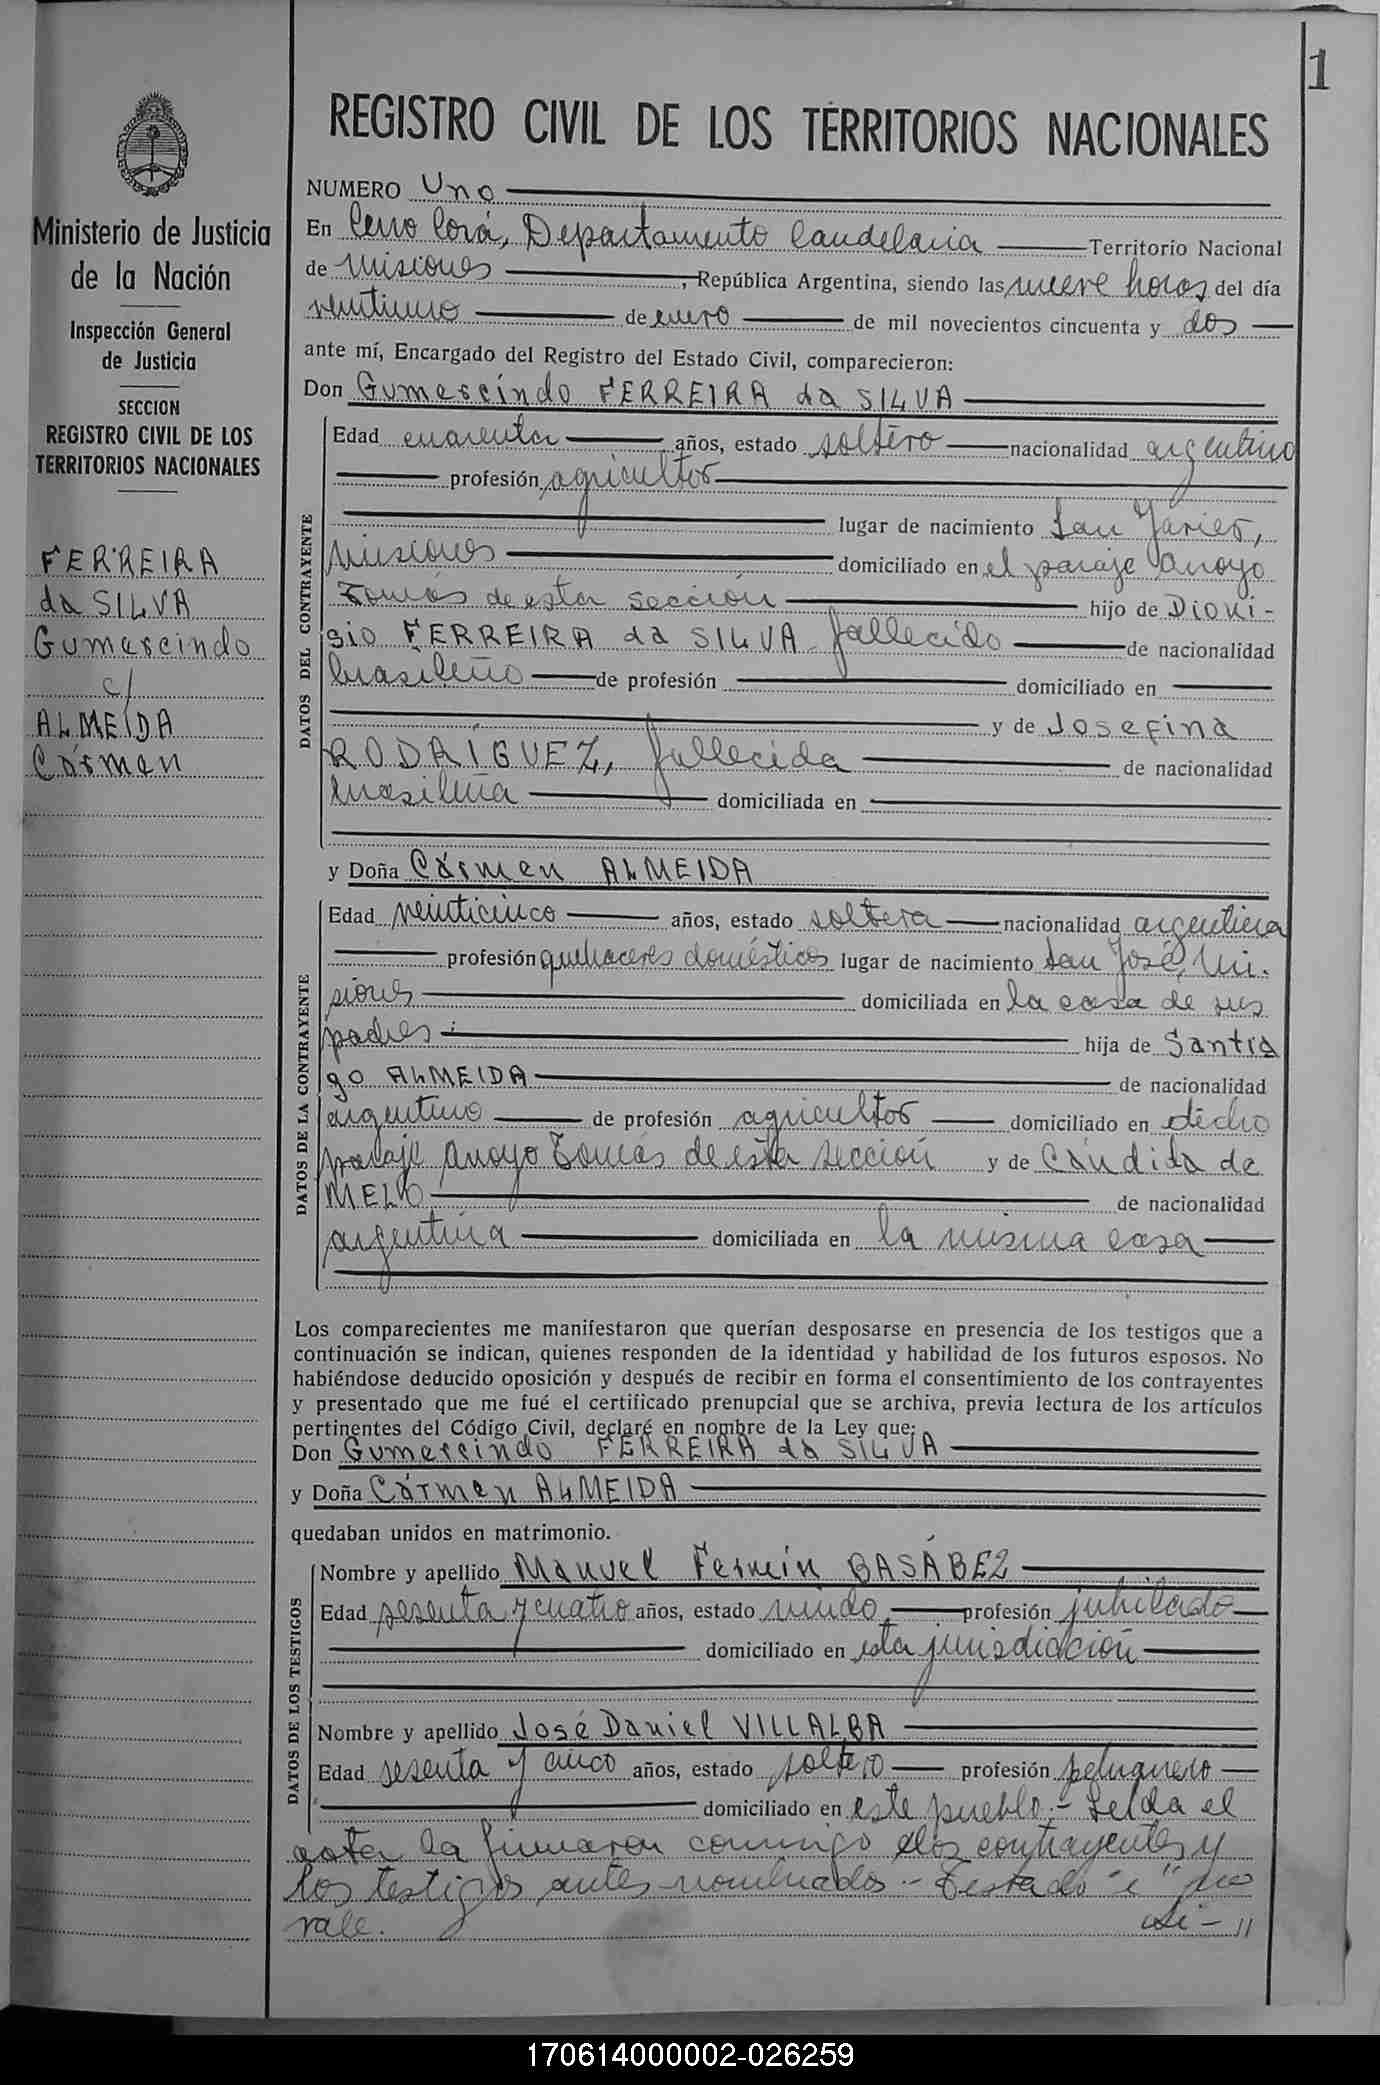 1
REGISTRO CIVIL DE LOS TERRITORIOS NACIONALES
Ministerio de Justicia
de la Nación
Inspección General
de Justicia
SECCION
REGISTRO CIVIL DE LOS
TERRITORIOS NACIONALES
FERREIRA
da SILVA
Gumescindo
c/
ALMEIDA
Cármen
NUMERO Uno
En Cerro Corá, Departamento Candelaria Territorio Nacional
de Misiones , República Argentina, siendo las nueve horas del día
veintiuno de enero de mil novecientos cincuenta y dos
ante mí, Encargado del Registro del Estado Civil, comparecieron:
Don Gumescindo FERREIRA da SILVA
DATOS DEL CONTRAYENTE
Edad cuarenta años, estado soltero nacionalidad argentino
profesión agricultor
lugar de nacimiento San Javier,
Misiones domiciliado en el paraje Arroyo
Tomás de esta sección hijo de Dioni-
sio FERREIRA da SILVA fallecido de nacionalidad
brasileño de profesión domiciliado en
y de Josefina
RODRÍGUEZ, fallecida de nacionalidad
brasileña domiciliada en
y Doña Cármen ALMEIDA
DATOS DE LA CONTRAYENTE
Edad veinticinco años, estado soltera nacionalidad argentina
profesión quehaceres domésticos lugar de nacimiento San José, Mi-
siones domiciliada en la casa de sus
padres hija de Santia
go ALMEIDA de nacionalidad
argentino de profesión agricultor domiciliado en dicho
paraje Arroyo Tomás de esta sección y de Cándida de
MELO de nacionalidad
argentina domiciliada en la misma casa
Los comparecientes me manifestaron que querían desposarse en presencia de los testigos que a
continuación se indican, quienes responden de la identidad y habilidad de los futuros esposos. No
habiéndose deducido oposición y después de recibir en forma el consentimiento de los contrayentes
y presentado que me fué el certificado prenupcial que se archiva, previa lectura de los artículos
pertinentes del Código Civil, declaré en nombre de la Ley que:
Don Gumescindo FERREIRA da SILVA
y Doña Cármen ALMEIDA
quedaban unidos en matrimonio.
DATOS DE LOS TESTIGOS
Nombre y apellido Manuel Fermín BASÁBEZ
Edad sesenta y cuatro años, estado viudo profesión jubilado
domiciliado en esta jurisdicción
Nombre y apellido José Daniel VILLALBA
Edad sesenta y cinco años, estado soltero profesión peluquero
domiciliado en este pueblo.- Leída el
acta la firmaron conmigo los contrayentes y
los testigos antes nombrados.- Testado "i" no
vale.
170614000002-026259